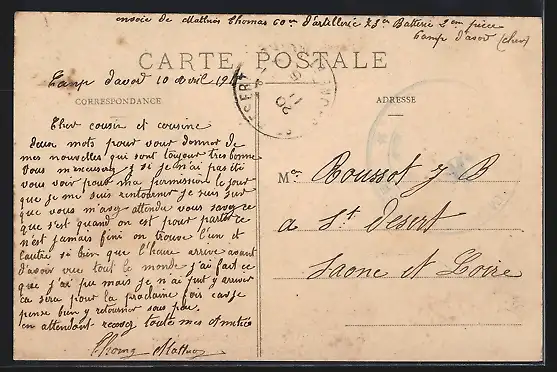 envoie de Mathieu Thomas 60em d'artillerie Batterie 2em pièce
Camp d'avor (cher)
CARTE POSTALE
Camp d'avord 10 Avril 19
CORRESPONDANCE
ADRESSE
Cher cousin et cousine
Deux mots pour vous donner de
mes nouvelles qui sont toujour tres bonne
Vous m'excuserez si je n'ai pas été
vous voir pour ma permission le jour
que je me suis rentourner je suis sur
que vous m'avez attendu vous savez ce
que s'est quand on est pour partir ce
n'est jamais fini on trouve l'un et
l'autre si bien que l'heure arrive avant
d'avoir vue tout le monde j'ai fait ce
que j'ai pu mais je n'ai put y arriver
ca sera pour la prochaine fois car je
pense bien y retourner sous peu.
en attendant recevez toutes mes amitiés
Thomas Mathieu
Mr Roussot J B
a St Desert
Saone et Loire